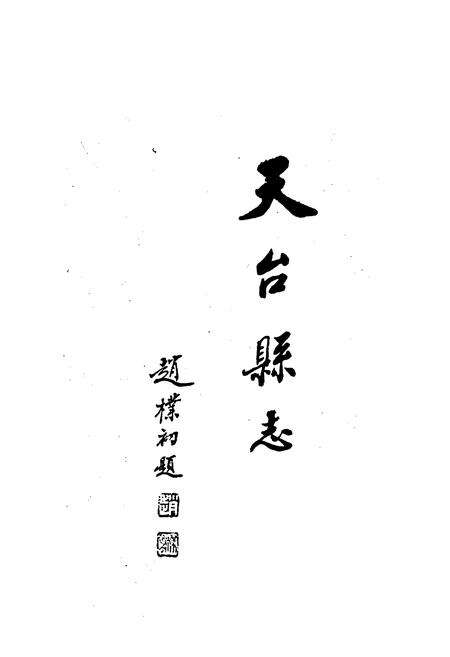 天台縣志
趙樸初題